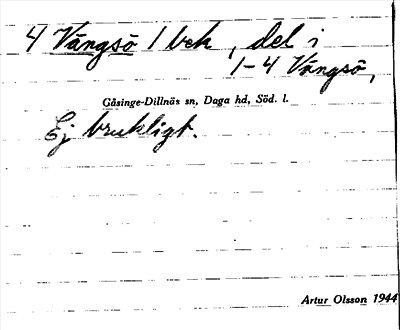 4 Vängsö 1 bek, del i
1-4 Vängsö,
Gåsinge-Dillnäs sn, Daga hd, Söd. l.
Ej brukligt.
Artur Olsson 1944